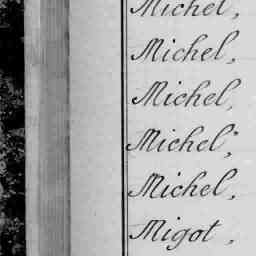 Michel,
Michel,
Michel,
Michel,
Michel,
Migot,